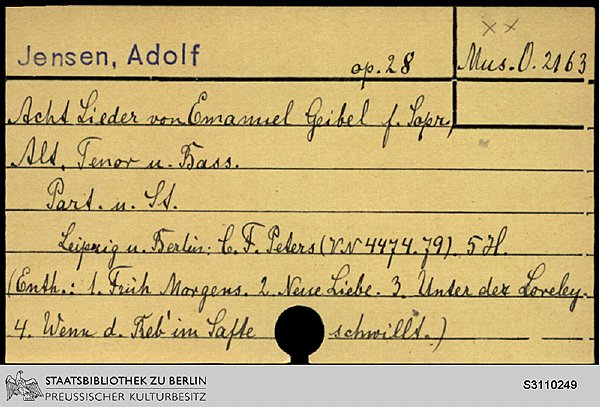 Jensen, Adolf
op. 28
Mus. O. 2163
Acht Lieder von Emanuel Geibel f. Sopr.,
Alt, Tenor u. Bass.
Part. u. St.
Leipzig u. Berlin: C. F. Peters (VN 4474.79). 5 H.
(Enth.: 1. Früh Morgens. 2. Neue Liebe. 3. Unter der Loreley.
4. Wenn d. Reb' im Safte schwillt.)
STAATSBIBLIOTHEK ZU BERLIN
PREUSSISCHER KULTURBESITZ
S3110249